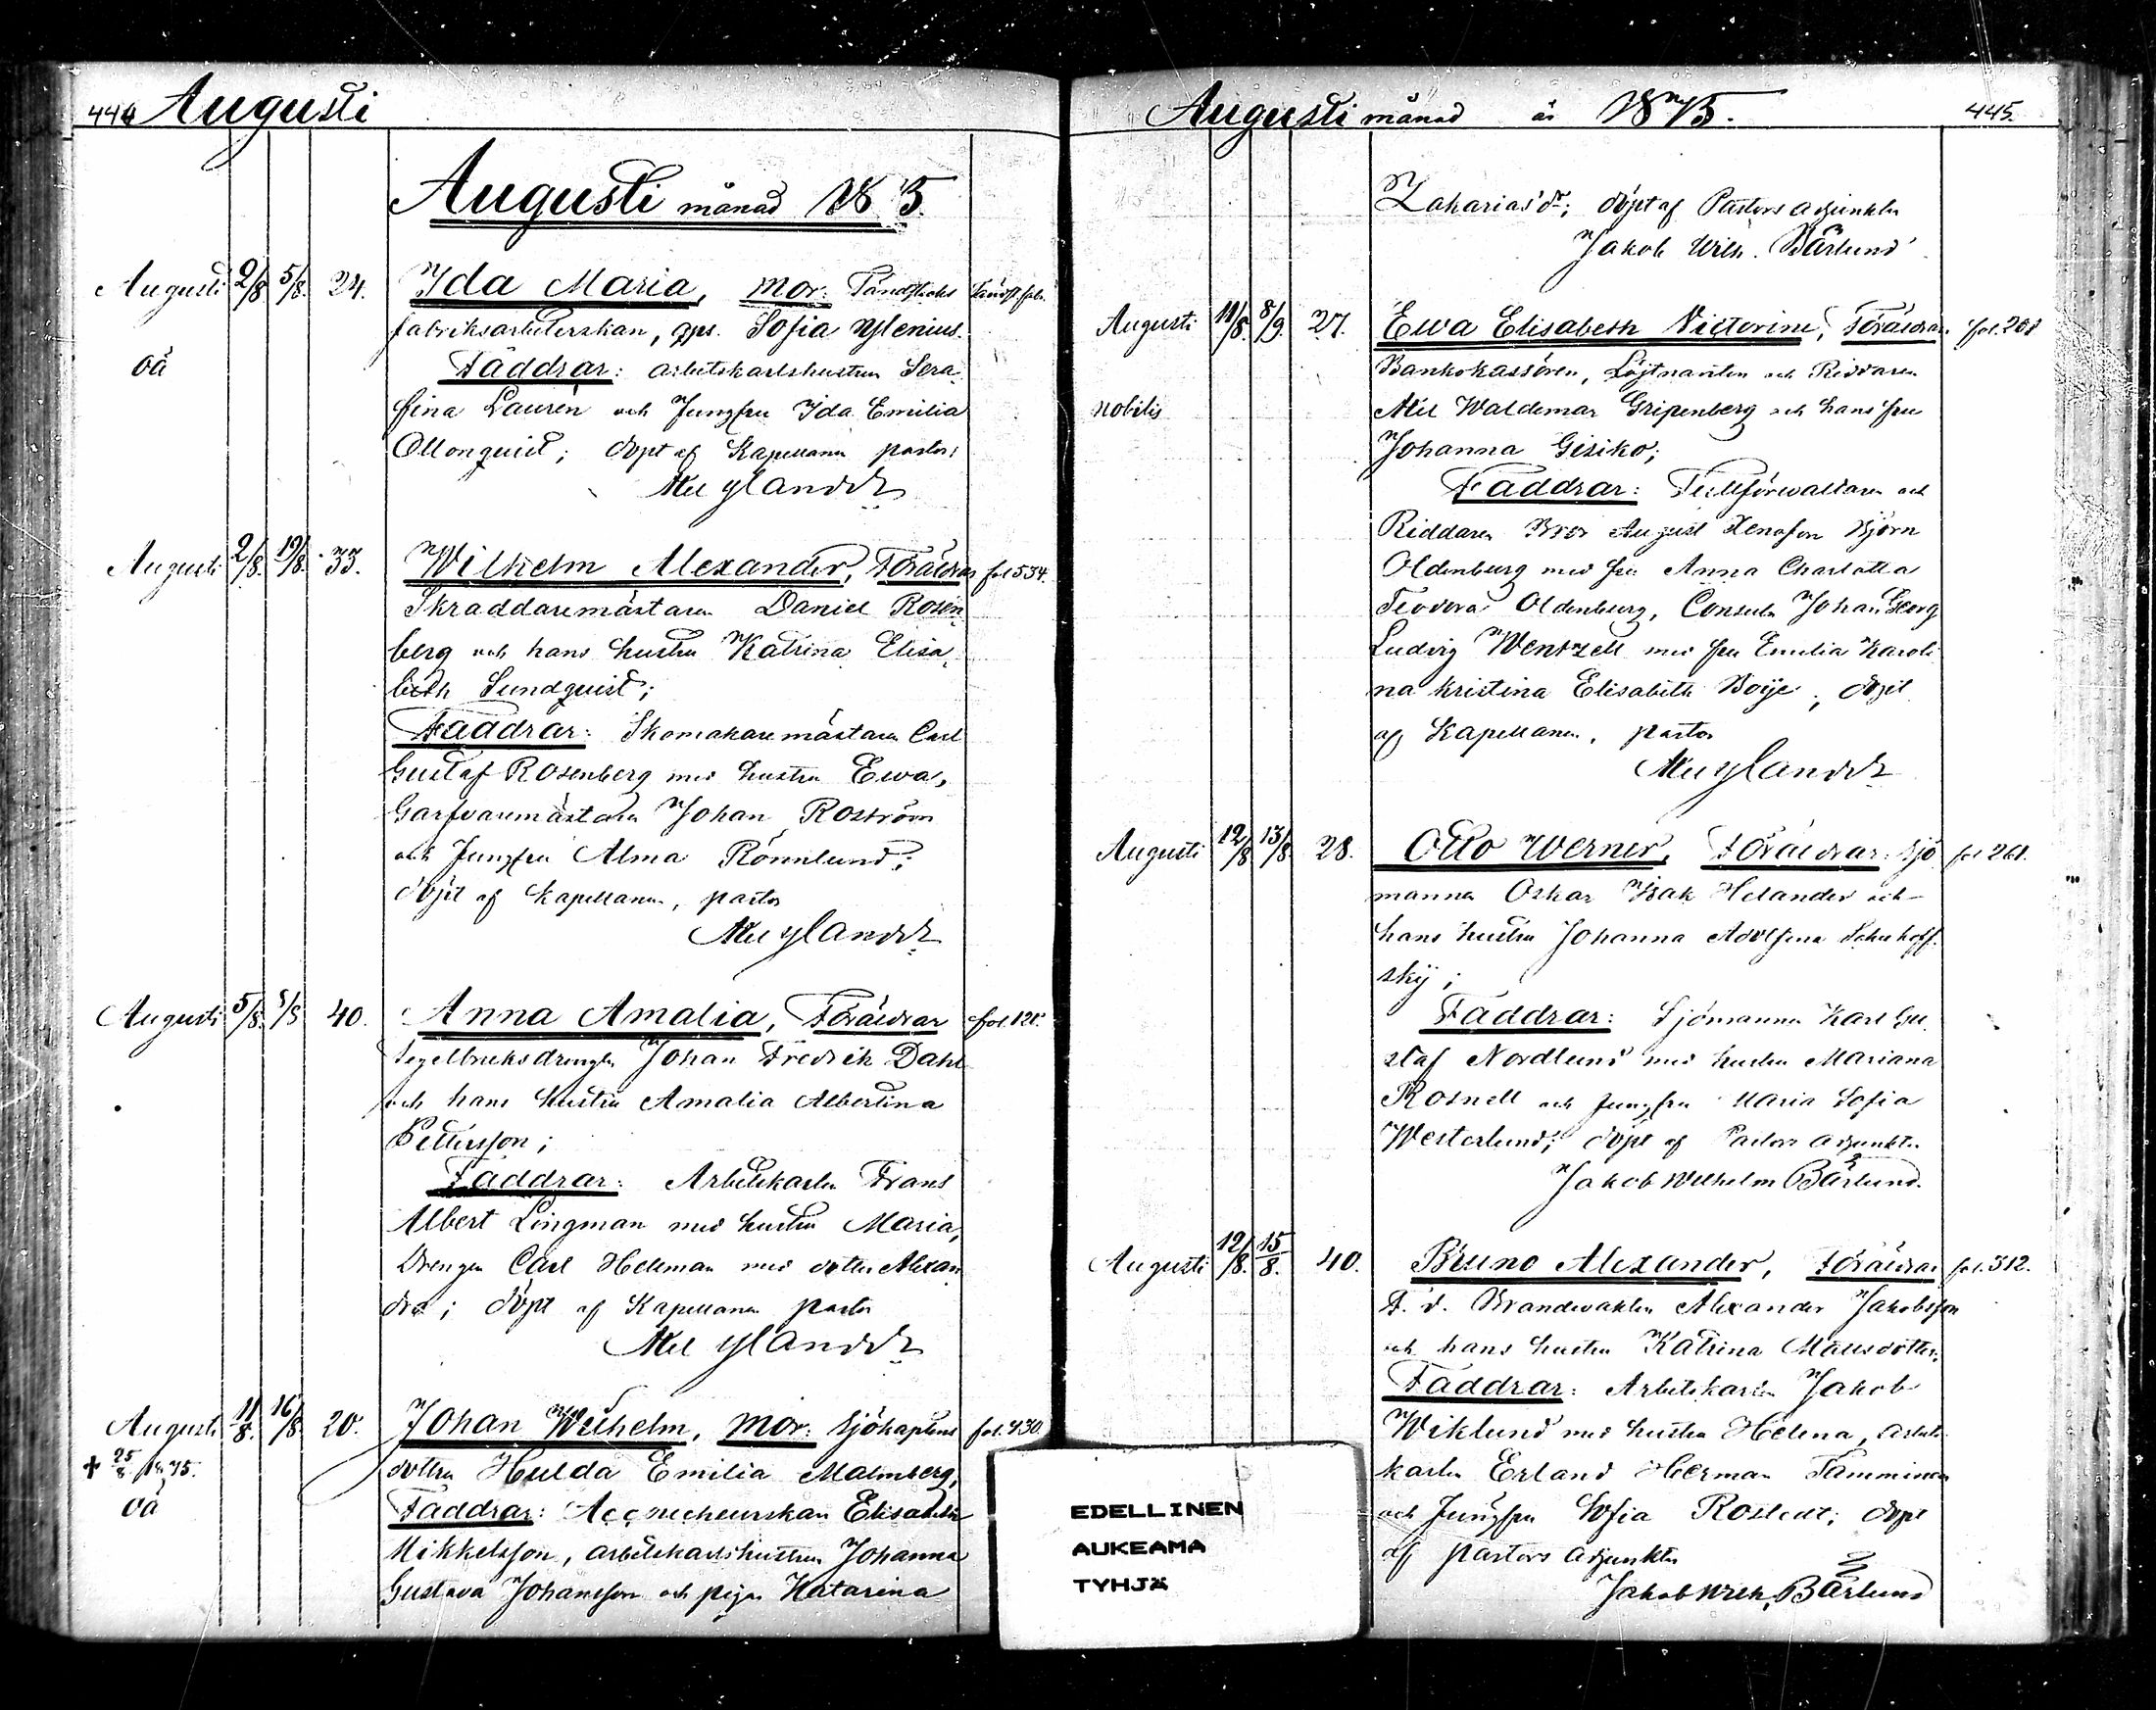 444 Augusti
Augusti månad 1875.
Augusti 2/8 5/8. 24. Ida Maria, Mor: Tändsticks
fabriksarbeterskan, Sofia Nylenius.
oä Faddrar: arbetskarlshustrun Sera-
fina Laurén och Jungfru Ida Emilia
Ollonquist; döpt af Kapellanen pastor:
Axel Ylander
Augusti 2/8. 19/8. 33. Wilhelm Alexander, Föräldrar fol 534.
Skraddaremästaren Daniel Rosen-
berg och hans hustru Katrina Elisa-
beth Sundquist;
Faddrar: Skomakaremästaren Carl
Gustaf Rosenberg med hustru Ewa,
Garfvaremästaren Johan Roström
och Jungfru Alma Rönnlund;
döpt af Kapellanen, pastor
Axel Ylander
Augusti 5/8. 40. Anna Amalia, Föräldrar
Tegelbruksdrengen Johan Fredrik Dahl
och hans hustru Amalia Albertina
Pettersson;
Faddrar: Arbetskarlen Frans
Albert Lingman med hustru Maria,
Drengen Carl Hellman med dotter Alexan
dra; döpt af Kapellanen pastor
Axel Ylander
Augusti 11/8. 16/8. 20. Johan Wilhelm, Mor: Sjökaptens fol. 430.
+ 25/8 1875. dottern Hulda Emilia Malmberg,
oä Faddrar: Accoucheurskan Elisabeth
Mikkelsson, arbetskarlshustrun Johanna
Gustava Johansson och pigan Katarina
Augusti månad år 1875. 445.
Zakariasdr; döpt af Pastors adjunkten
Jakob Wilh. Bärlund
Augusti 11/8. 8/9. 27. Ewa Elisabeth Victorine, Föräldrar
Bankokassören, Löjtnanten och Riddaren
nobilis Axel Waldemar Gripenberg och hans fru
Johanna Gisiko;
Faddrar: Tullförvaltaren och
Riddaren August Xenofon Björn
Oldenburg med fru Anna Charlotta
Teodora Oldenburg, Consuln Johan Georg
Ludvig Wentzell med fru Emilia Karoli
na Kristina Elisabeth Boije; döpt
af Kapellanen, pastor
Axel Ylander
Augusti 12/8 13/8. 28. Otto Werner, Föräldrar: Sjö fol 261.
mannen Oskar Isak Helander och
hans hustru Johanna Adolfina
sky;
Faddrar: Sjömannen Karl Gu-
staf Nordlund med hustru Mariana
Rosnell och Jungfru Maria Sofia
Westerlund; döpt af Pastors adjunkten
Jakob Wilhelm Bärlund.
Augusti 12/8. 15/8. 40. Bruno Alexander, Föräldrar fol. 512.
F. d. Brandvakten Alexander Jakobsson
och hans hustru Katrina Mattsdotter;
Faddrar: Arbetskarlen Jakob
Wiklund med hustru Helena, arbets-
karlen Erland Herman Tamminen
och Jungfru Sofia Rostedt; döpt
af pastors adjunkten
Jakob Wilh. Bärlund
EDELLINEN
AUKEAMA
TYHJÄ